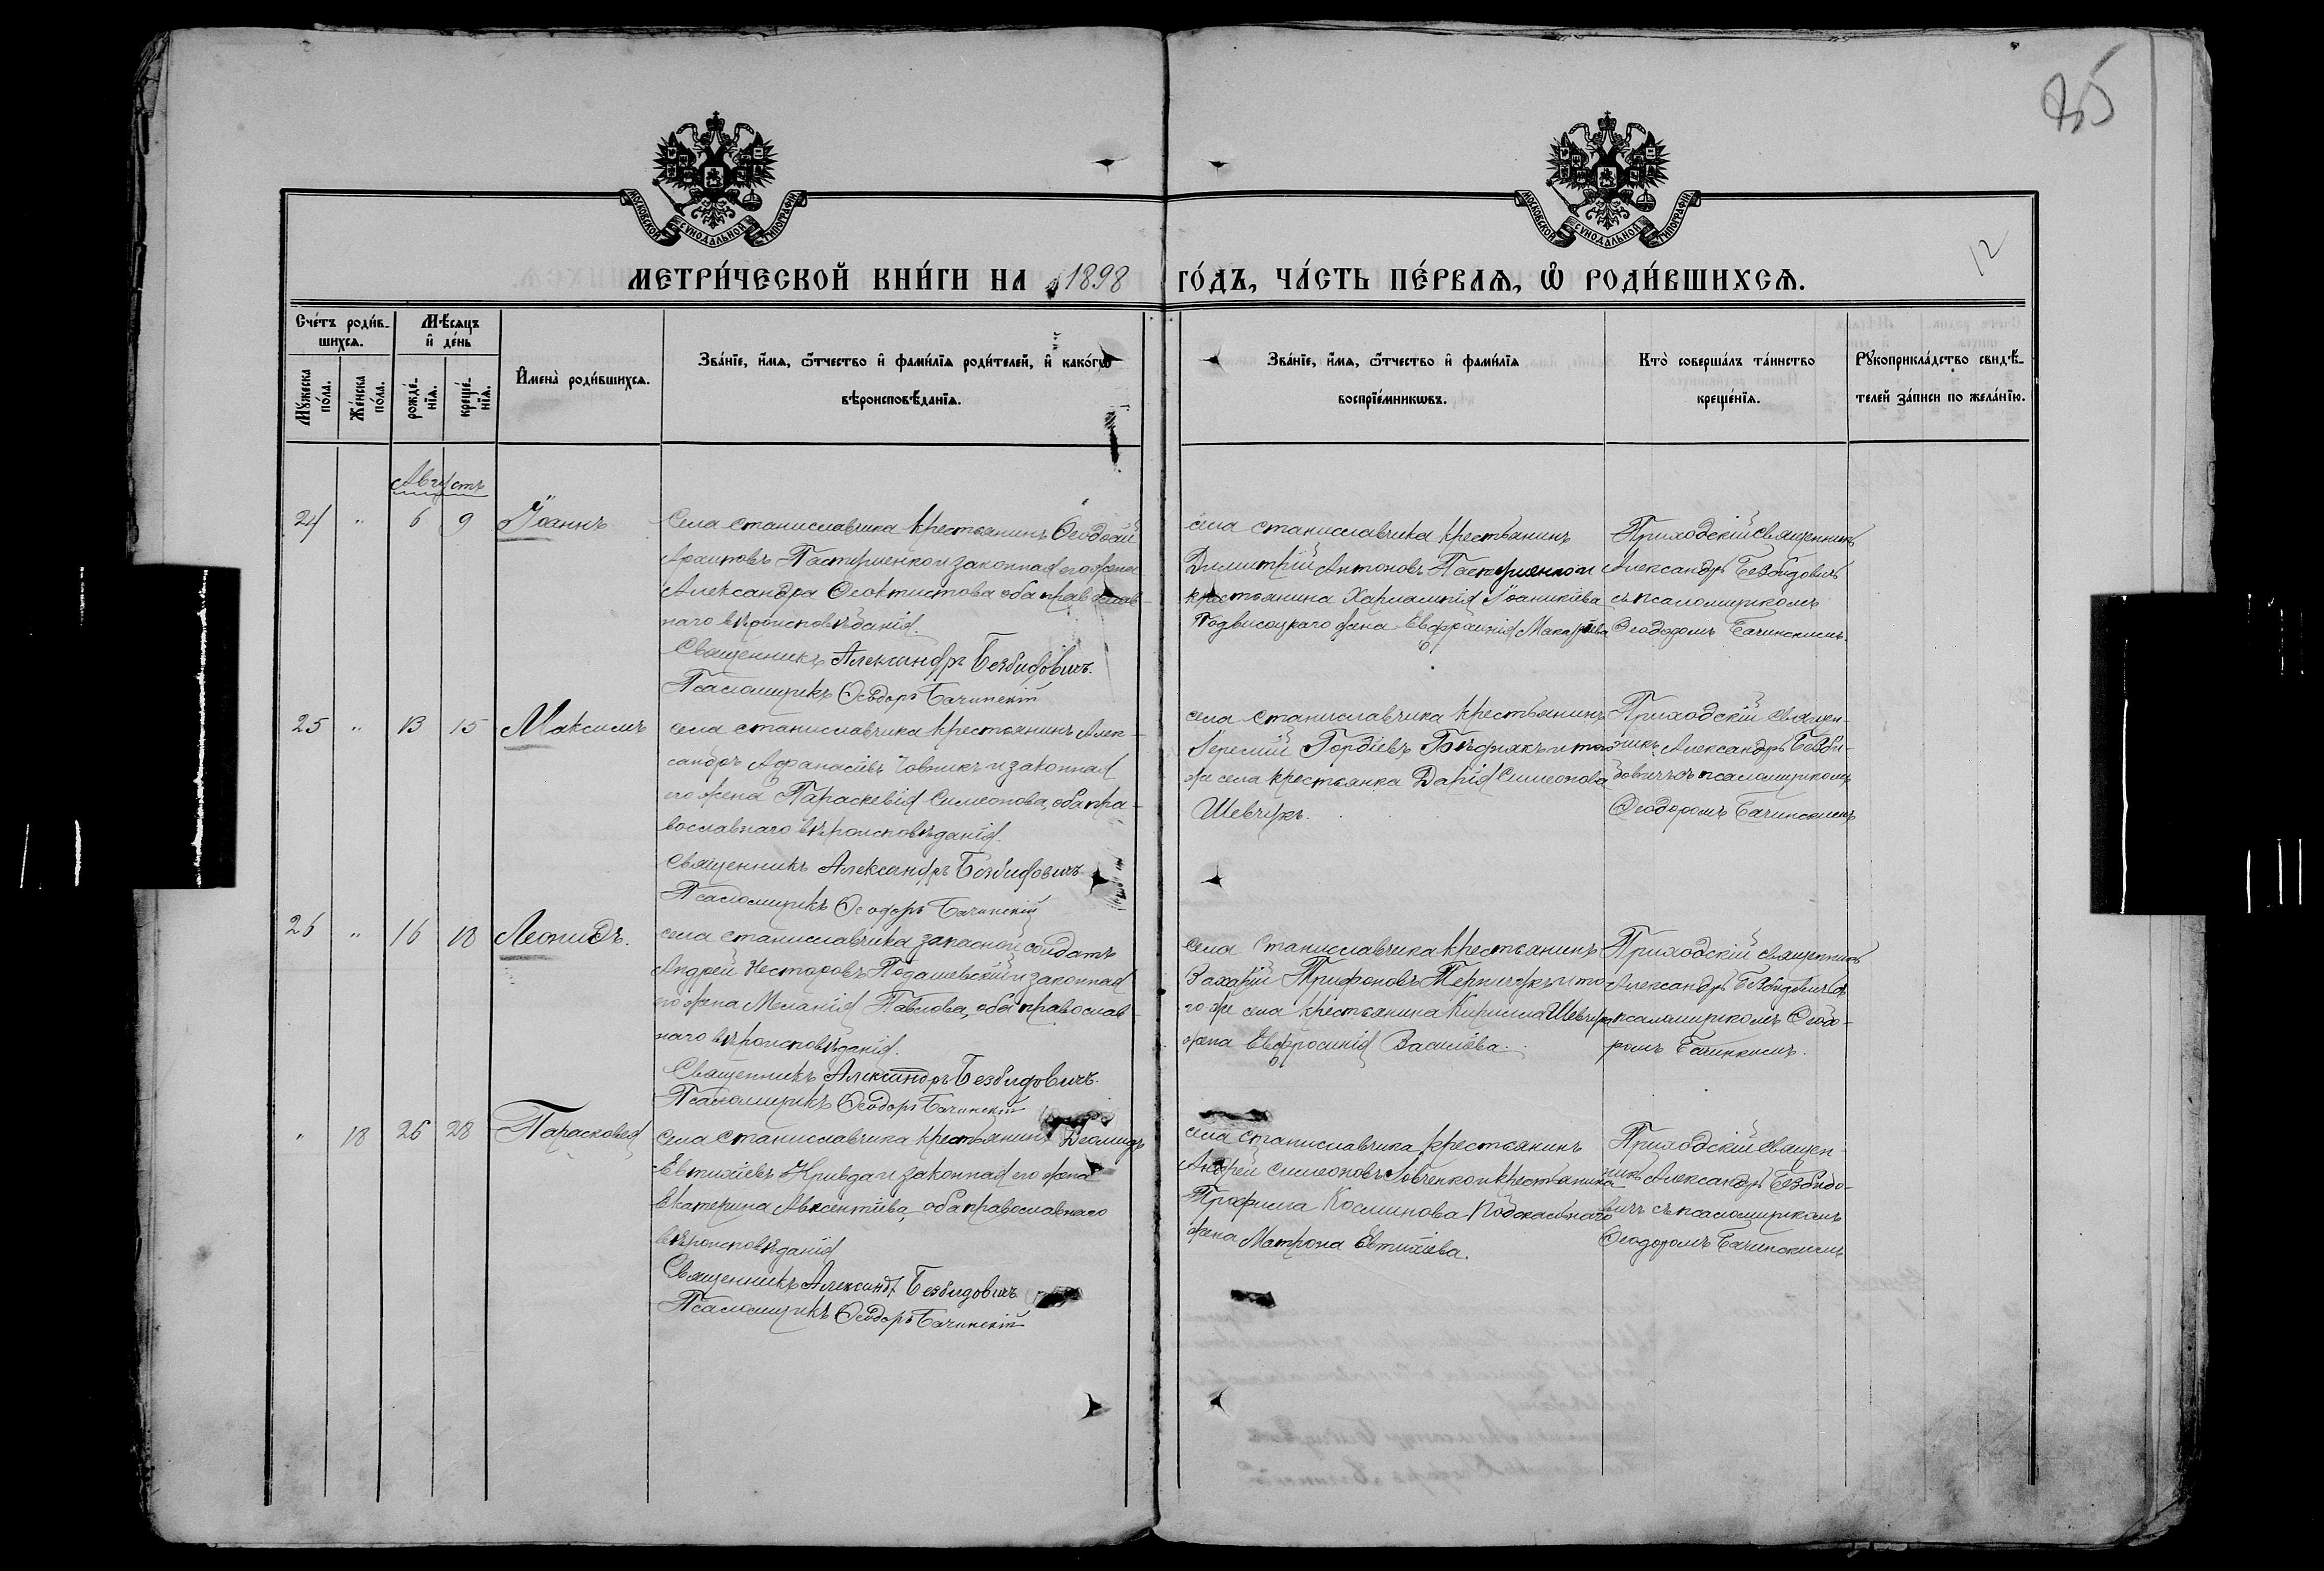 85
12
МОСКОВСКОЙ СѴНОДАЛЬНОЙ ТИПОГРАФІИ
МОСКОВСКОЙ СѴНОДАЛЬНОЙ ТИПОГРАФІИ
МЕТРИ́ЧЕСКОЙ КНИ́ГИ НА 1898 ГО́ДЪ, ЧА́СТЬ ПЕ́РВАѦ, Ѿ РОДИ́ВШИХСѦ.
Сче́тъ роди́в-
шихсѧ.
Мꙋ́жеска по́ла.
Же́нска по́ла.
Мѣ́сѧцъ
и҆ де́нь
рожде́-
нїѧ.
креще́-
нїѧ.
И҆мена̀ роди́вшихсѧ.
Зва́нїе, и҆́мѧ, ѻ҆́тчество и҆ фами́лїѧ роди́телей, и҆ како́гѡ
вѣроисповѣ́данїѧ.
Зва́нїе, и҆́мѧ, ѻ҆́тчество и҆ фами́лїѧ
воспрїе́мникѡвъ.
Кто̀ соверша́лъ та́инство
креще́нїѧ.
Рꙋкоприкла́дство свидѣ́-
телей за́писи по жела́нїю.
Августъ
24 " 6 9 Іоаннъ
Села Станиславчика крестьянинъ Ѳеодосій
Архиповъ Пастушенко и законная его жена
Александра Ѳеоктистова оба православ-
наго вѣроисповѣданія.
Священникъ Александръ Безбидовичъ.
Псаломщикъ Ѳеодоръ Бачинскій
села Станиславчика крестьянинъ
Димитрій Антоновъ Пастушенко и
крестьянина Харлампія Іоаникіева
Подвисоцкаго жена Евфросинія Макаріева
Приходскій священникъ
Александръ Безбидовичъ
съ псаломщикомъ
Ѳеодоромъ Бачинскимъ.
25 " 13 15 Максимъ
села Станиславчика крестьянинъ Алек-
сандръ Афанасіевъ Човникъ и законная
его жена Параскевія Симеонова, оба пра-
вославнаго вѣроисповѣданія.
Священникъ Александръ Безбидовичъ
Псаломщикъ Ѳеодоръ Бачинскій
села Станиславчика крестьянинъ
Іеремій Гордіевъ и того
же села крестьянка Дарія Симеонова
Шевчукъ.
Приходскій священ-
никъ Александръ Безби-
довичъ съ псаломщикомъ
Ѳеодоромъ Бачинскимъ
26 " 16 18 Леонидъ.
села Станиславчика запасной солдатъ
Андрей Несторовъ Подашевскій и законная
его жена Меланія Павлова, оба православ-
наго вѣроисповѣданія.
Священникъ Александръ Безбидовичъ.
Псаломщикъ Ѳеодоръ Бачинскій
села Станиславчика крестьянинъ
Захарій Трифоновъ и то-
го же села крестьянина Кирилла Шевчука
жена Евфросинія Василіева.
Приходскій священникъ
Александръ Безбидовичъ съ
псаломщикомъ Ѳеодо-
ромъ Бачинскимъ.
" 18 26 28 Параскевія
села Станиславчика крестьянинъ Діомидъ
Евтихіевъ Кривда и законная его жена
Екатерина Авксентіева, оба православнаго
вѣроисповѣданія
Священникъ Александръ Безбидовичъ
Псаломщикъ Ѳеодоръ Бачинскій
села Станиславчика крестьянинъ
Андрей Симеоновъ и крестьянина
Трофима Косминова
жена Матрона Евтихіева.
Приходскій священ-
никъ Александръ Безбидо-
вичъ съ псаломщикомъ
Ѳеодоромъ Бачинскимъ